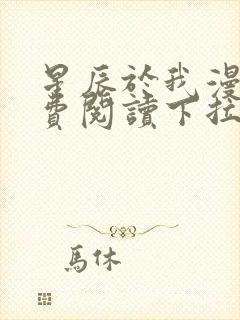 星辰於我漫
費閱讀下拉
馬休